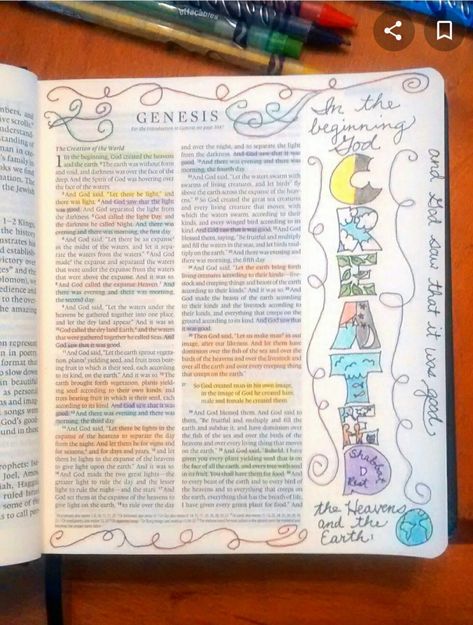 effacables
mbers, and
understand
standing of
the Jewish
1–2 Kings,
the histor
establi
victory over
and the
to the ove
the amazing
on represent
in poem
format the
to slow down
in beautiful
as personal
and imag
songs were
God's good
found in thes
prophets: be
Joel, Amos
some of the
GENESIS
The Creation of the World
1 In the beginning, God created the heavens
and the earth. ²The earth was without form
and void, and darkness was over the face of the
deep. And the Spirit of God was hovering over
the face of the waters.
³And God said, "Let there be light," and
there was light. ⁴And God saw that the light
was good. And God separated the light from
the darkness. ⁵God called the light Day, and
the darkness he called Night. And there was
evening and there was morning, the first day.
⁶And God said, "Let there be an expanse
in the midst of the waters, and let it sepa-
rate the waters from the waters." ⁷And God
made the expanse and separated the waters
that were under the expanse from the waters
that were above the expanse. And it was so.
⁸And God called the expanse Heaven. And
there was evening and there was morning,
the second day.
⁹And God said, "Let the waters under the
heavens be gathered together into one place,
and let the dry land appear." And it was so.
¹⁰God called the dry land Earth, and the waters
that were gathered together he called Seas. And
God saw that it was good.
¹¹And God said, "Let the earth sprout vegeta-
tion, plants yielding seed, and fruit trees bear-
ing fruit in which is their seed, each according
to its kind, on the earth." And it was so. ¹²The
earth brought forth vegetation, plants yield-
ing seed according to their own kinds, and
trees bearing fruit in which is their seed, each
according to its kind. And God saw that it was
good. ¹³And there was evening and there was
morning, the third day.
¹⁴And God said, "Let there be lights in the
expanse of the heavens to separate the day
from the night. And let them be for signs and
for seasons, and for days and years, ¹⁵and let
them be lights in the expanse of the heavens
to give light upon the earth." And it was so.
¹⁶And God made the two great lights—the
greater light to rule the day and the lesser
light to rule the night—and the stars. ¹⁷And
God set them in the expanse of the heavens to
give light on the earth, ¹⁸to rule over the day
and over the night, and to separate the light
from the darkness. And God saw that it was
good. ¹⁹And there was evening and there was
morning, the fourth day.
²⁰And God said, "Let the waters swarm with
swarms of living creatures, and let birds fly
above the earth across the expanse of the heav-
ens." ²¹So God created the great sea creatures
and every living creature that moves, with
which the waters swarm, according to their
kinds, and every winged bird according to its
kind. And God saw that it was good. ²²And God
blessed them, saying, "Be fruitful and multiply
and fill the waters in the seas, and let birds mul-
tiply on the earth." ²³And there was evening and
there was morning, the fifth day.
²⁴And God said, "Let the earth bring forth
living creatures according to their kinds—live-
stock and creeping things and beasts of the earth
according to their kinds." And it was so. ²⁵And
God made the beasts of the earth according
to their kinds and the livestock according to
their kinds, and everything that creeps on the
ground according to its kind. And God saw that
it was good.
²⁶Then God said, "Let us make man in our
image, after our likeness. And let them have
dominion over the fish of the sea and over the
birds of the heavens and over the livestock and
over all the earth and over every creeping thing
that creeps on the earth."
²⁷So God created man in his own image,
in the image of God he created him;
male and female he created them.
²⁸And God blessed them. And God said to
them, "Be fruitful and multiply and fill the
earth and subdue it, and have dominion over
the fish of the sea and over the birds of the
heavens and over every living thing that moves
on the earth." ²⁹And God said, "Behold, I have
given you every plant yielding seed that is on
the face of all the earth, and every tree with seed
in its fruit. You shall have them for food. ³⁰And
to every beast of the earth and to every bird of
the heavens and to everything that creeps on the
earth, everything that has the breath of life,
I have given every green plant for food." And
In the
beginning
God
CREATED
Shabbat
Rest
the Heavens
and the
Earth.
and God saw that it was good.